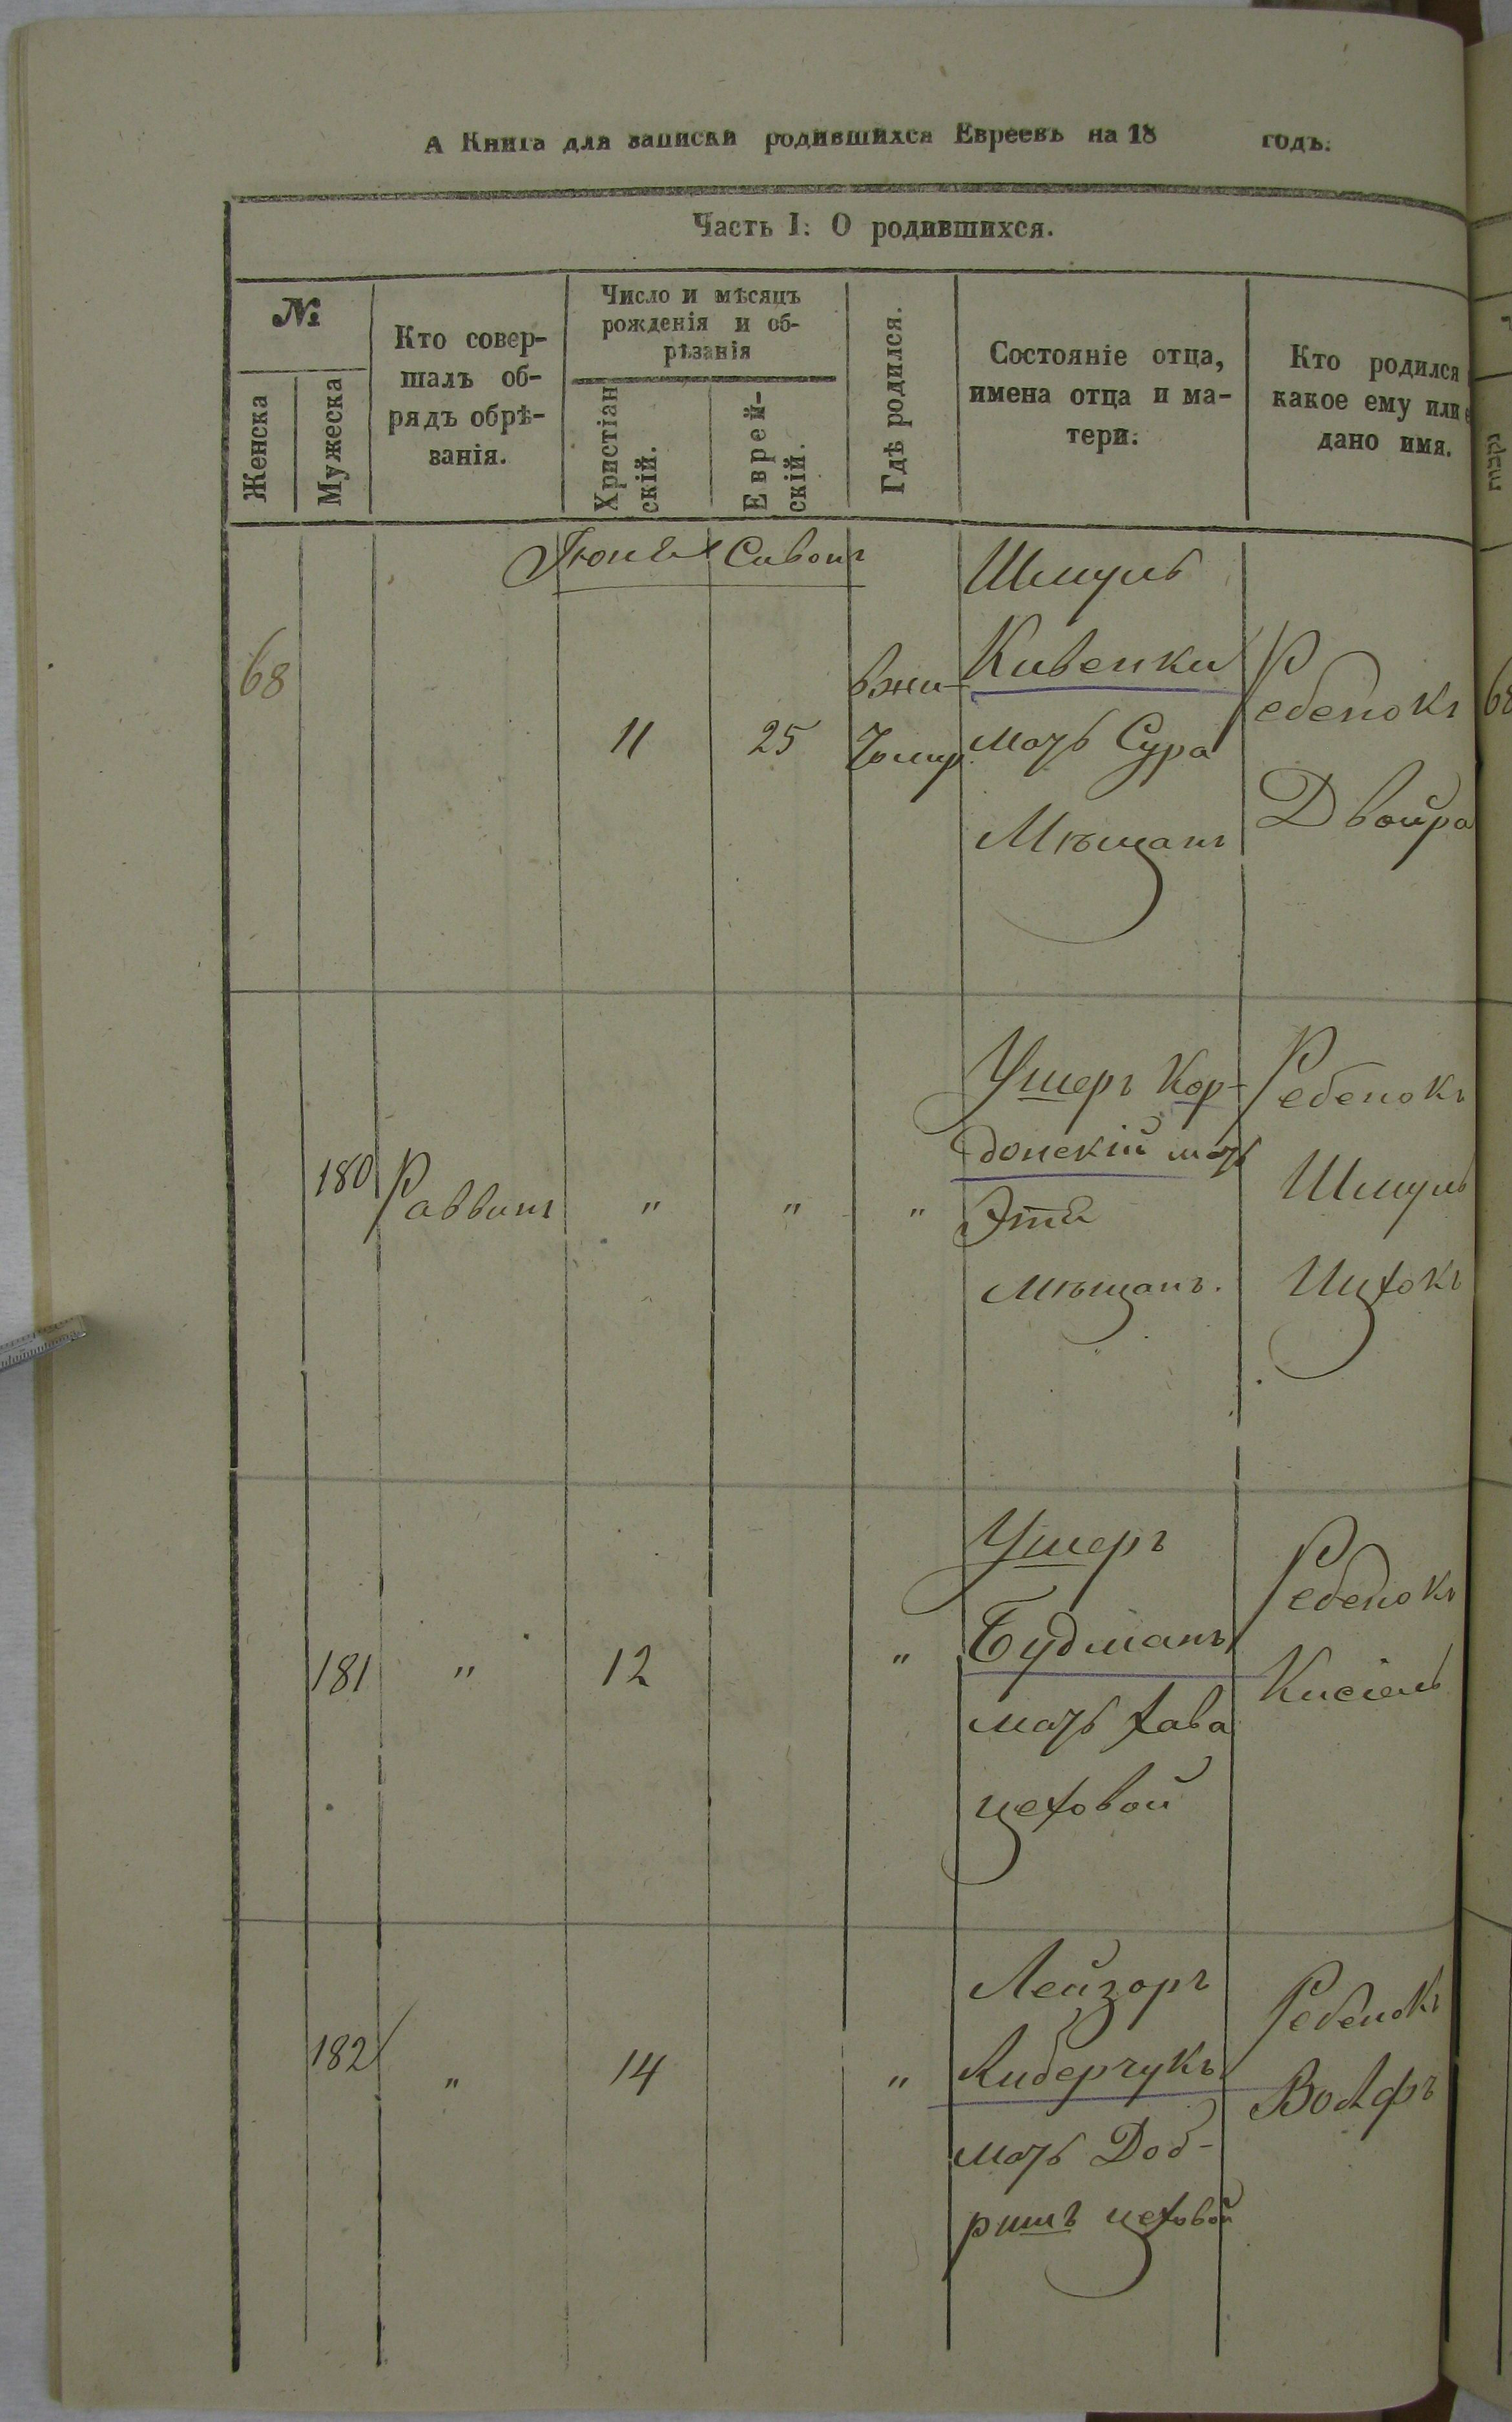 А Книга для записки родившихся Евреевъ на 18 годъ.
Часть I: О родившихся.
№
Женска
Мужеска
Кто совер-
шалъ об-
рядъ обрѣ-
занія.
Число и мѣсяцъ
рожденія и об-
рѣзанія
Христіан
скій.
Еврей-
скій.
Гдѣ родился.
Состояніе отца,
имена отца и ма-
тери.
Кто родился
какое ему или е
дано имя.
Іюнь Сивонъ
68
11
25
в жи-
томир
Шмуль
Кивенки
мать Сура
Мѣщанъ
Ребенокъ
Двойра
68
180
Раввинъ
"
"
"
Ушеръ Кор-
донскій мать
Этя
мѣщанъ.
Ребенокъ
Шмуль
Ицхокъ
181
"
12
"
Ушеръ
Будманъ
мать Хава
цеховой
Ребенокъ
Кисіель
182
"
14
"
Лейзоръ
Либерчукъ
мать Доб-
ришъ цеховой
Ребенокъ
Волфъ